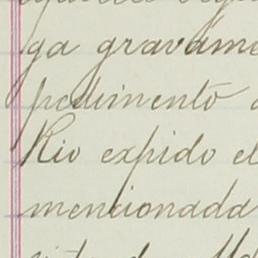 ga gravame
pedimento
Rio expido el
mencionada